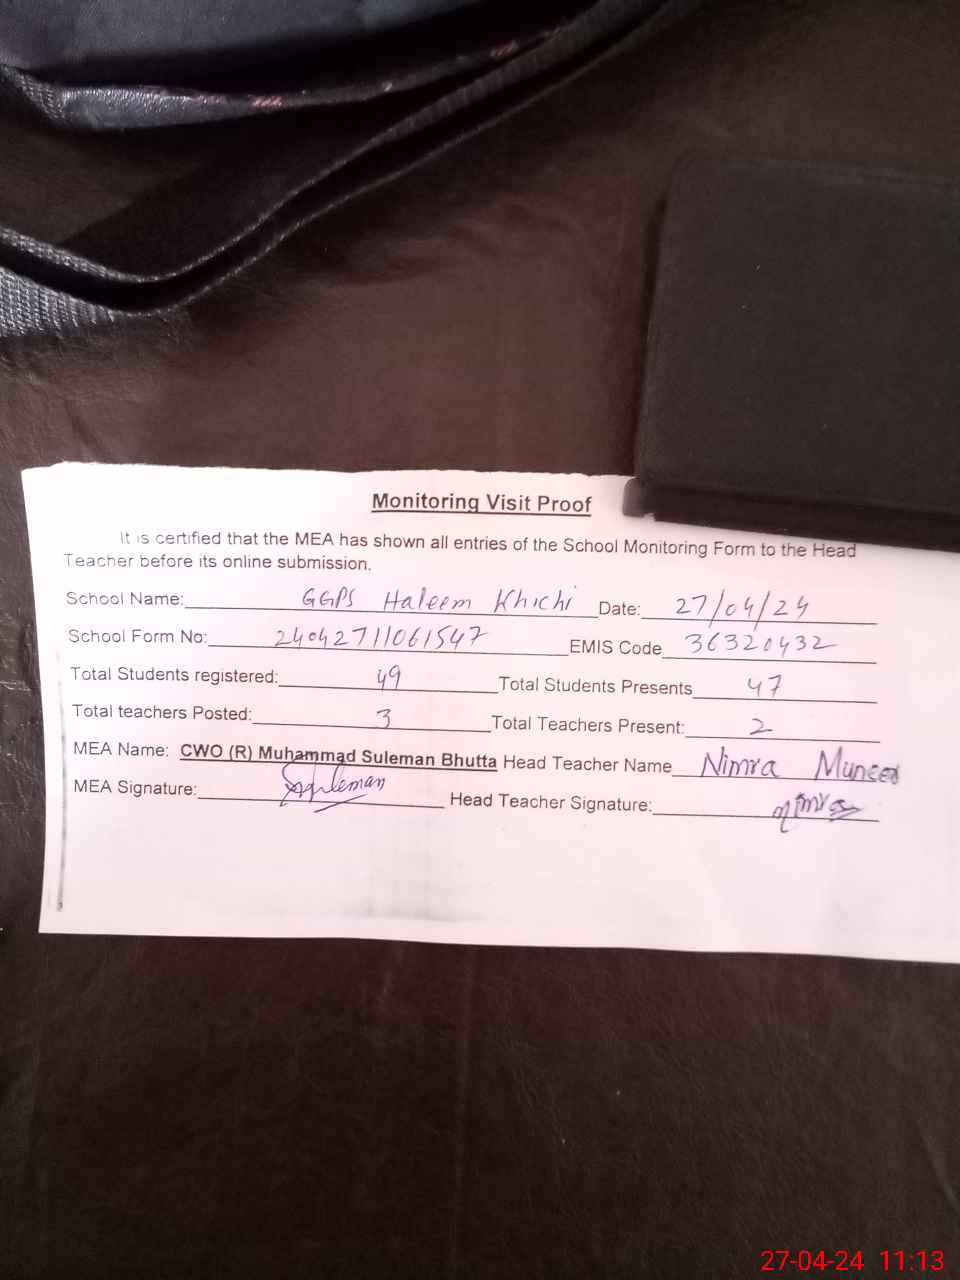 Monitoring Visit Proof
It is certified that the MEA has shown all entries of the School Monitoring Form to the Head
Teacher before its online submission.
School Name: GGPS Haleem Khichi Date: 27/04/24
School Form No: 24042711061547 EMIS Code 36320432
Total Students registered: 49 Total Students Presents 47
Total teachers Posted: 3 Total Teachers Present: 2
MEA Name: CWO (R) Muhammad Suleman Bhutta Head Teacher Name Nimra Muneer
MEA Signature: Suleman Head Teacher Signature: Nimra
27-04-24 11:13